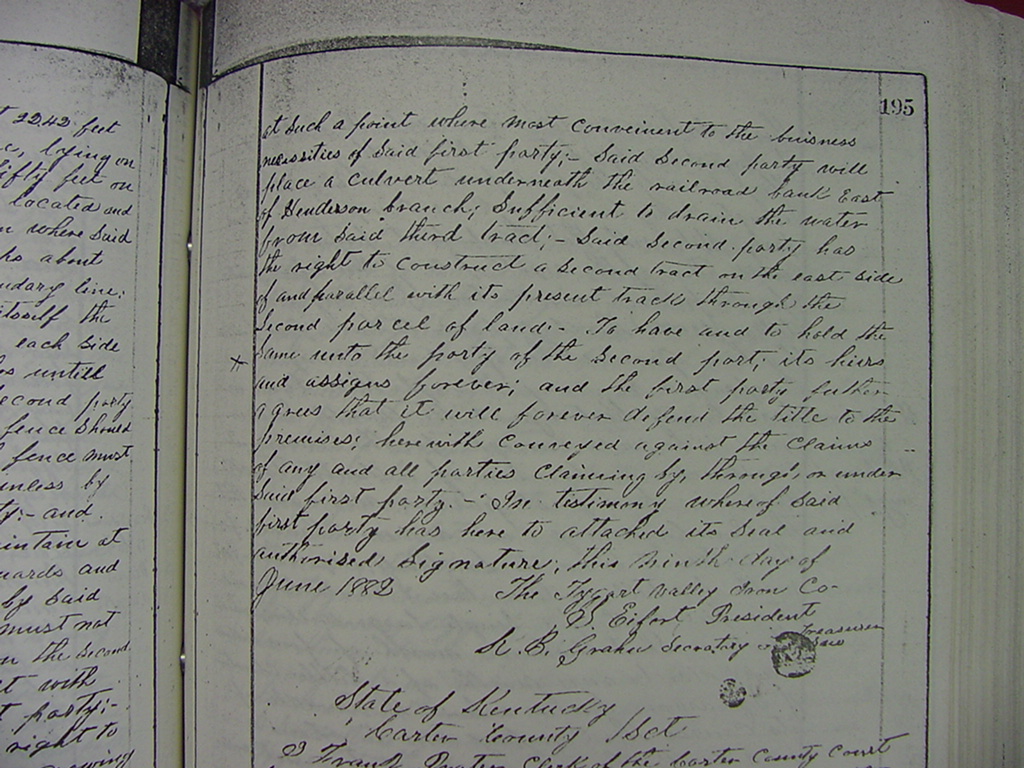 t 2242 feet
c, lying on
fifty feet on
located and
n where Said
ks about
undary line;
itself the
each side
es untill
econd party
fence should
fence must
unless by
ty:- and.
aintain at
uards and
by said
must not
n the second
ct with
t party;-
right to
195
at Such a point where most Conveinent to the buisness
necessities of Said first party;- Said Second party will
place a Culvert underneath the railroad bank East
of Henderson branch; Sufficient to drain the water
from Said third tract;- Said Second party has
the right to Construct a Second tract on the east side
of and parallel with its present track through the
Second parcel of land:- To have and to hold the
x Same unto the party of the Second part; its hiers
and assigns forever; and the first party futher
agrees that it will forever defend the title to the
premises; herewith Conveyed against the Claims
of any and all parties Claiming by, through, or under
Said first party.- In testimony where of Said
first party has here to attached its Seal and
authorised Signature; this ninth day of
June 1882 The Tygart Valley Iron Co-
Eifort President
Treasurer
B. Graham Secretary
State of Kentucky
Carter County Sct
I Frank Prater Clerk of the Carter County Court